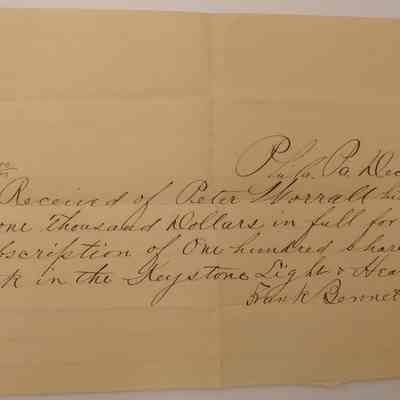 Phila. Pa. Dec
Received of Peter Worrall his
one Thousand Dollars, in full for
bscription of One hundred share
k in the Keystone Light & Hea
Frank Bonnet